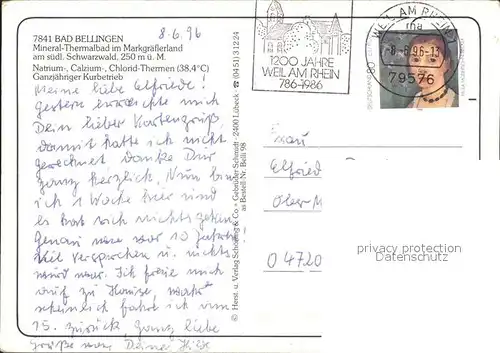 8.6.96
7841 BAD BELLINGEN
Mineral-Thermalbad im Markgräflerland
am südl. Schwarzwald, 250 m ü. M.
Natrium-, Calzium-, Chlorid-Thermen (38,4°C)
Ganzjähriger Kurbetrieb
Meine liebe Elfriede!
gestern erreichte mich
Dein lieber Kartengruß,
damit hatte ich nicht
gerechnet danke Dir
ganz herzlich. Nun bin
ich 1 Woche hier und
es hat sich nichts getan
Genau wie vor 10 Jahren
viel versprochen u. nichts
wird wahr. Ich freue mich
auf zu Hause,
scheinlich fahre ich am
15. zurück ganz liebe
Grüße von Deine
© Herst. u. Verlag Schöning & Co + Gebrüder Schmidt · 2400 Lübeck · ☎ (0451) 31224
Bestell-Nr. Belli 98
1200 JAHRE
WEIL AM RHEIN
786-1986
WEIL AM RHEIN
-8.-6.96-13
79576
Frau
Elfried
Ober
04720
privacy protection
Datenschutz